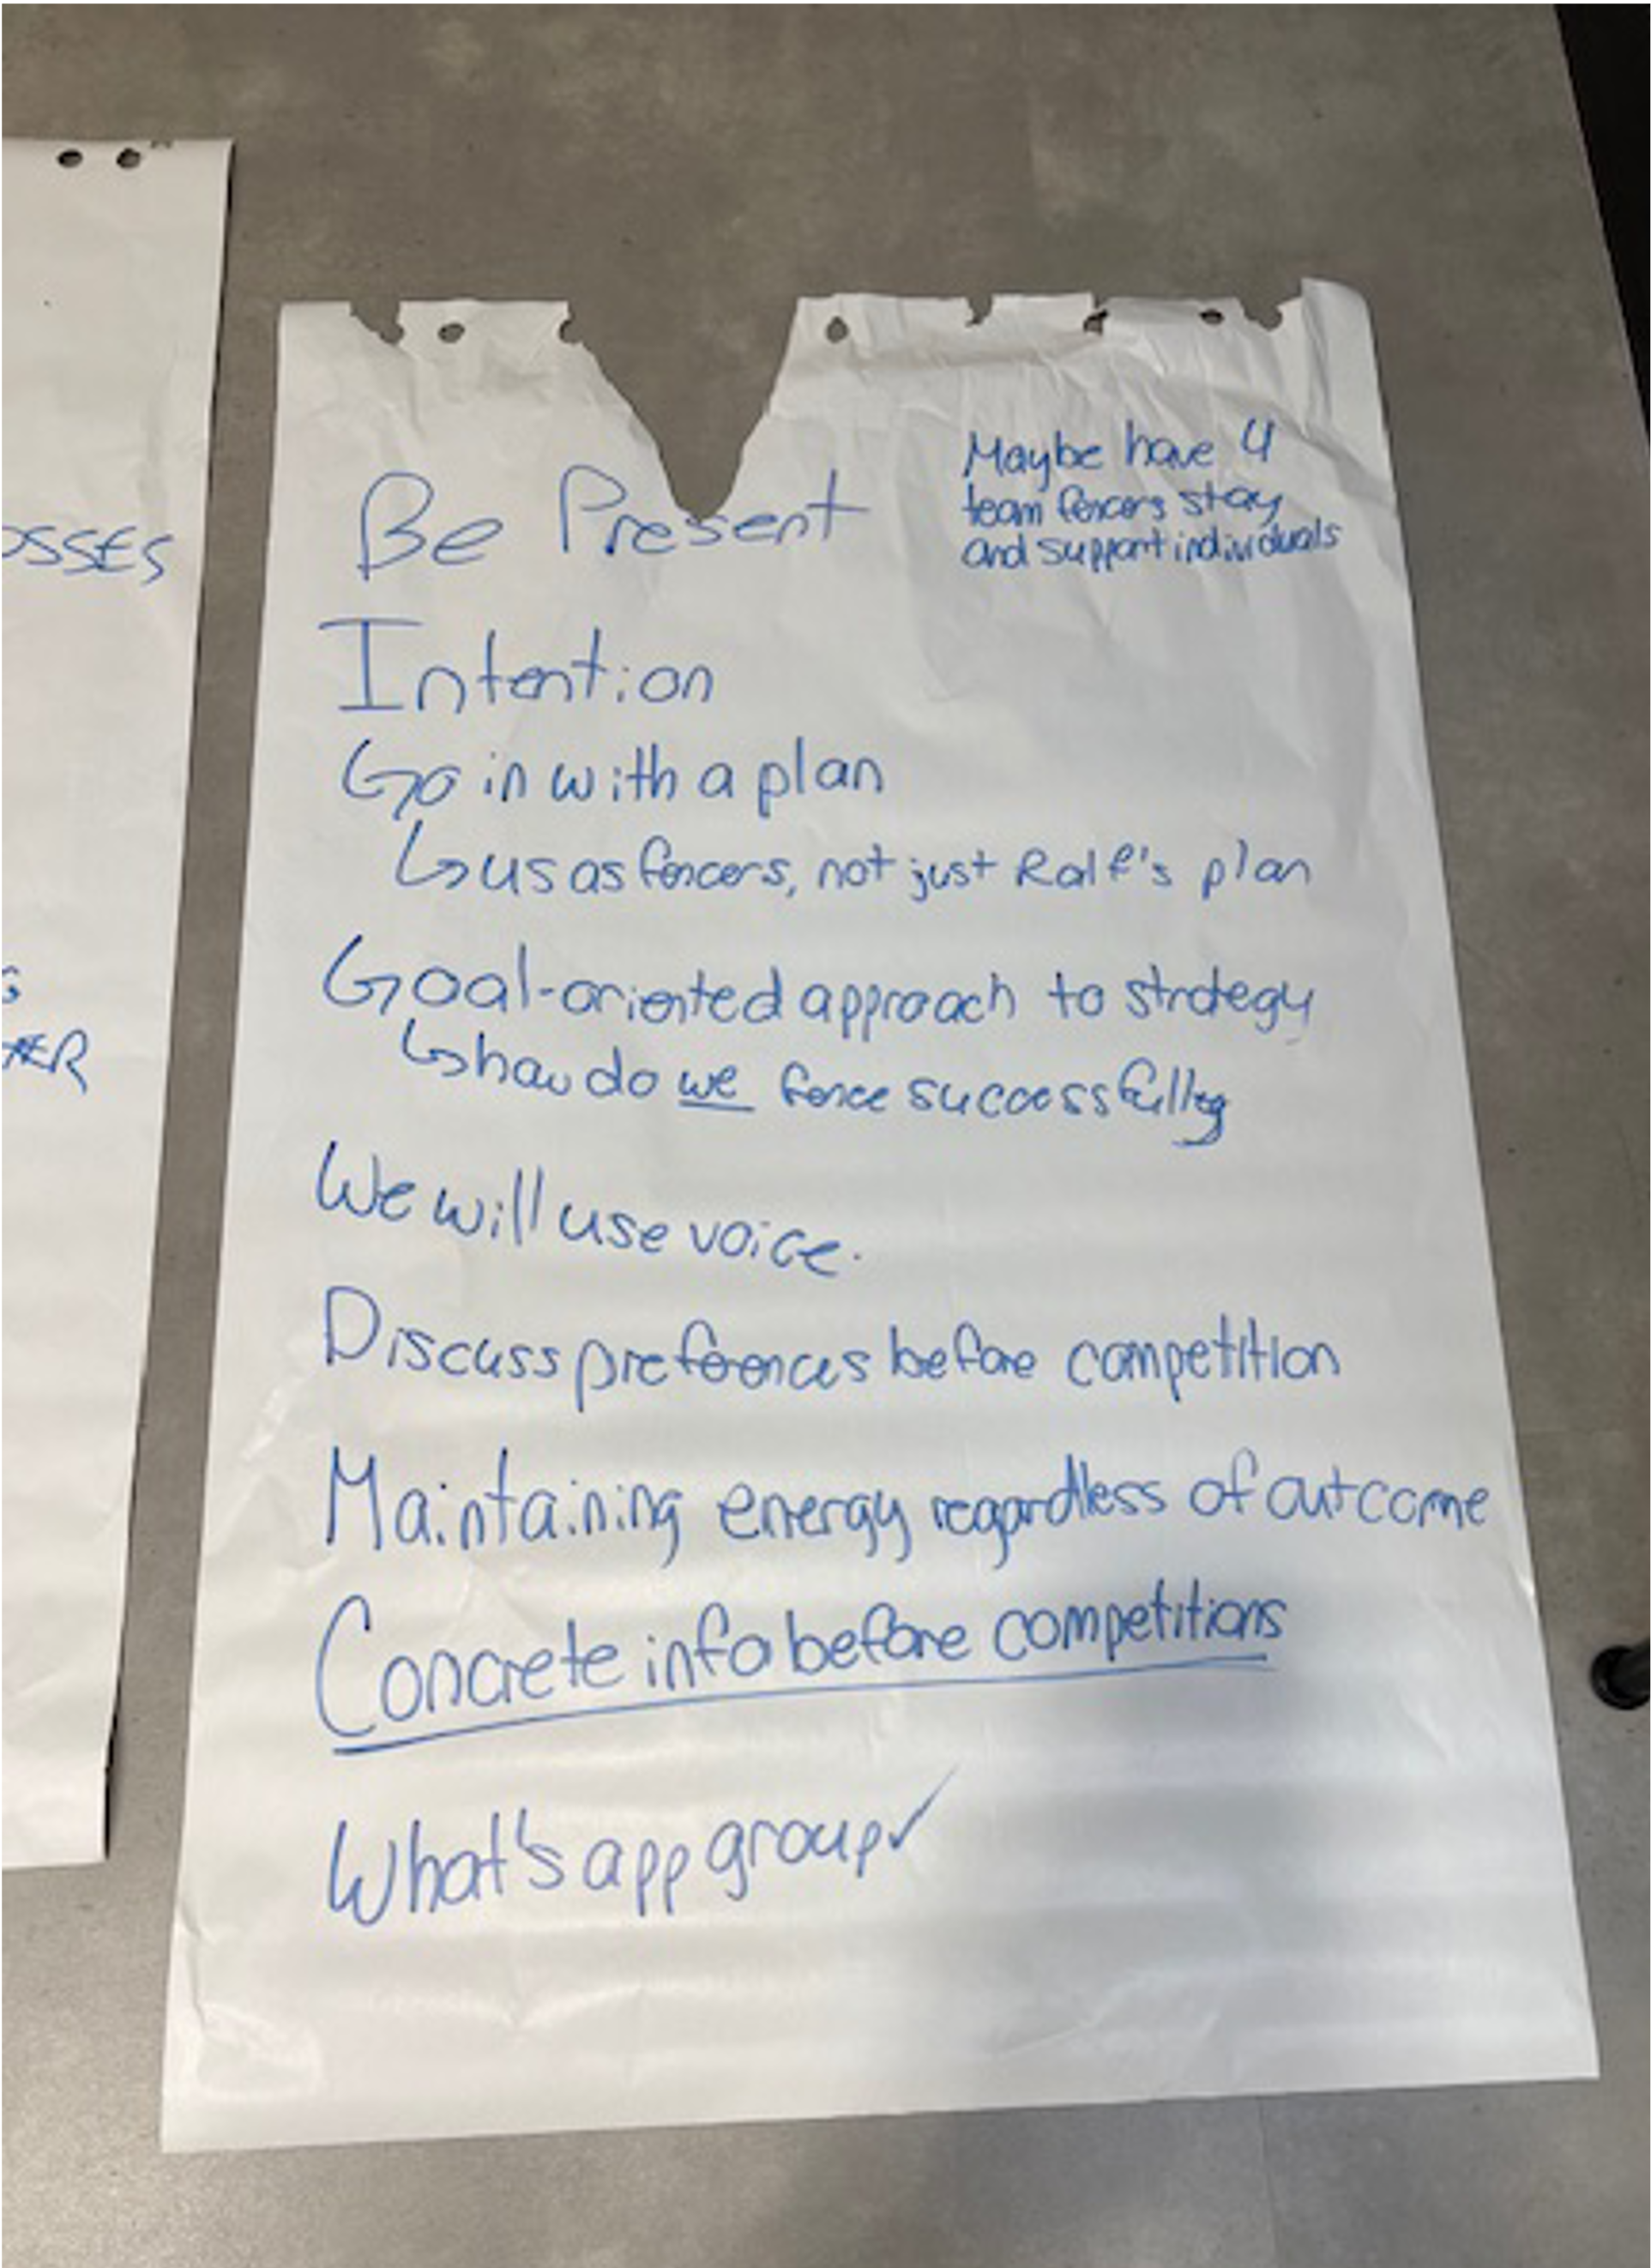 OSSES
G
Be Present
Maybe have 4
team fencers stay
and support individuals
Intention
Go in with a plan
↳ us as fencers, not just Ralf's plan
Goal-oriented approach to strategy
↳ how do we fence successfully
We will use voice.
Discuss preferences before competition
Maintaining energy regardless of outcome
Concrete info before competitions
What's app group ✓